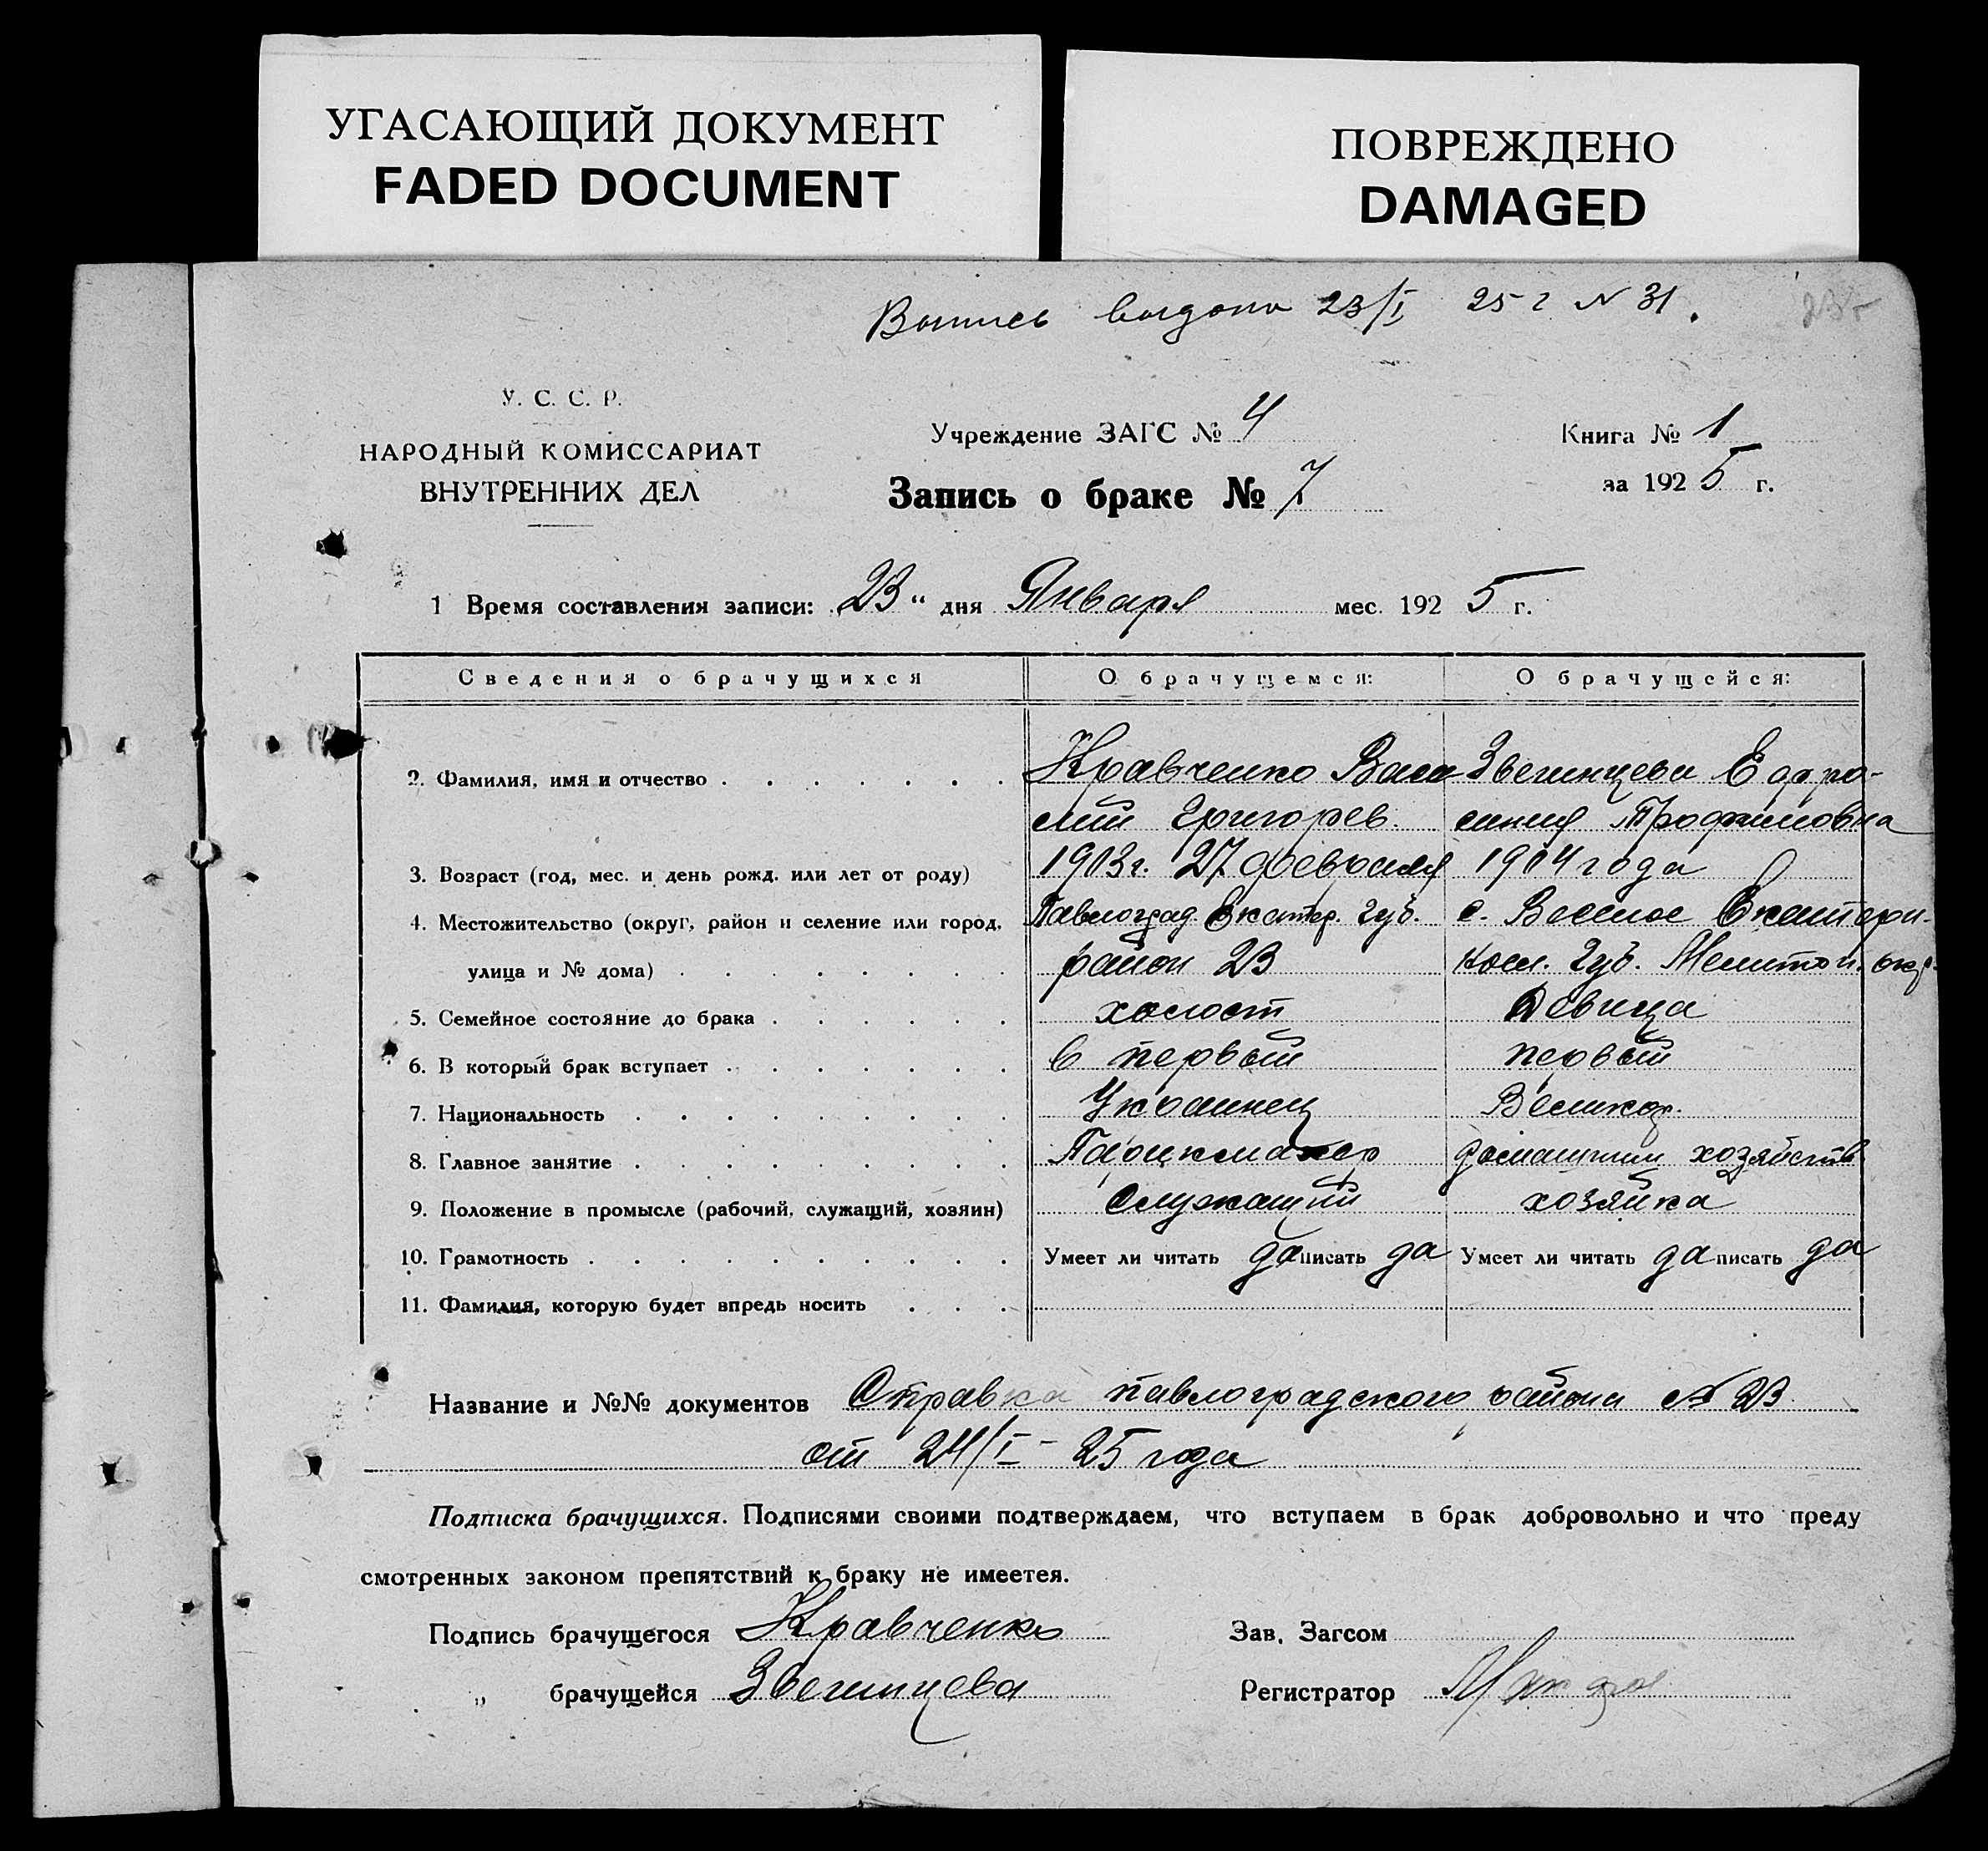 УГАСАЮЩИЙ ДОКУМЕНТ
FADED DOCUMENT
ПОВРЕЖДЕНО
DAMAGED
Выпись выдана 23/I 25 г № 31.
У. С. С. Р.
НАРОДНЫЙ КОМИССАРИАТ
ВНУТРЕННИХ ДЕЛ
Учреждение ЗАГС № 4
Запись о браке № 7
Книга № 1
за 1925 г.
1 Время составления записи: 23 " дня Января мес. 1925 г.
Сведения о брачущихся О брачущемся: О брачущейся:
2. Фамилия, имя и отчество Кравченко Васи Звегинцева Ефро-
лий Григорев. синия Трофимовна
3. Возраст (год, мес. и день рожд. или лет от роду) 1903 г. 27 февраля 1904 года
4. Местожительство (округ, район и селение или город, Павлоград Екатер. губ. с. Веселое Екатери-
улица и № дома) район 23 носл. губ. Мелитоп. окр.
5. Семейное состояние до брака холост Девица
6. В который брак вступает в первый первый
7. Национальность Украинец Великор.
8. Главное занятие домашним хозяйств
9. Положение в промысле (рабочий, служащий, хозяин) Служащий хозяйка
10. Грамотность Умеет ли читать да писать да Умеет ли читать да писать да
11. Фамилия, которую будет впредь носить
Название и №№ документов Справка павлоградского района № 23
от 24/I - 25 года
Подписка брачущихся. Подписями своими подтверждаем, что вступаем в брак добровольно и что преду
смотренных законом препятствий к браку не имеетея.
Подпись брачущегося Кравченко Зав. Загсом
" брачущейся Звегинцева Регистратор